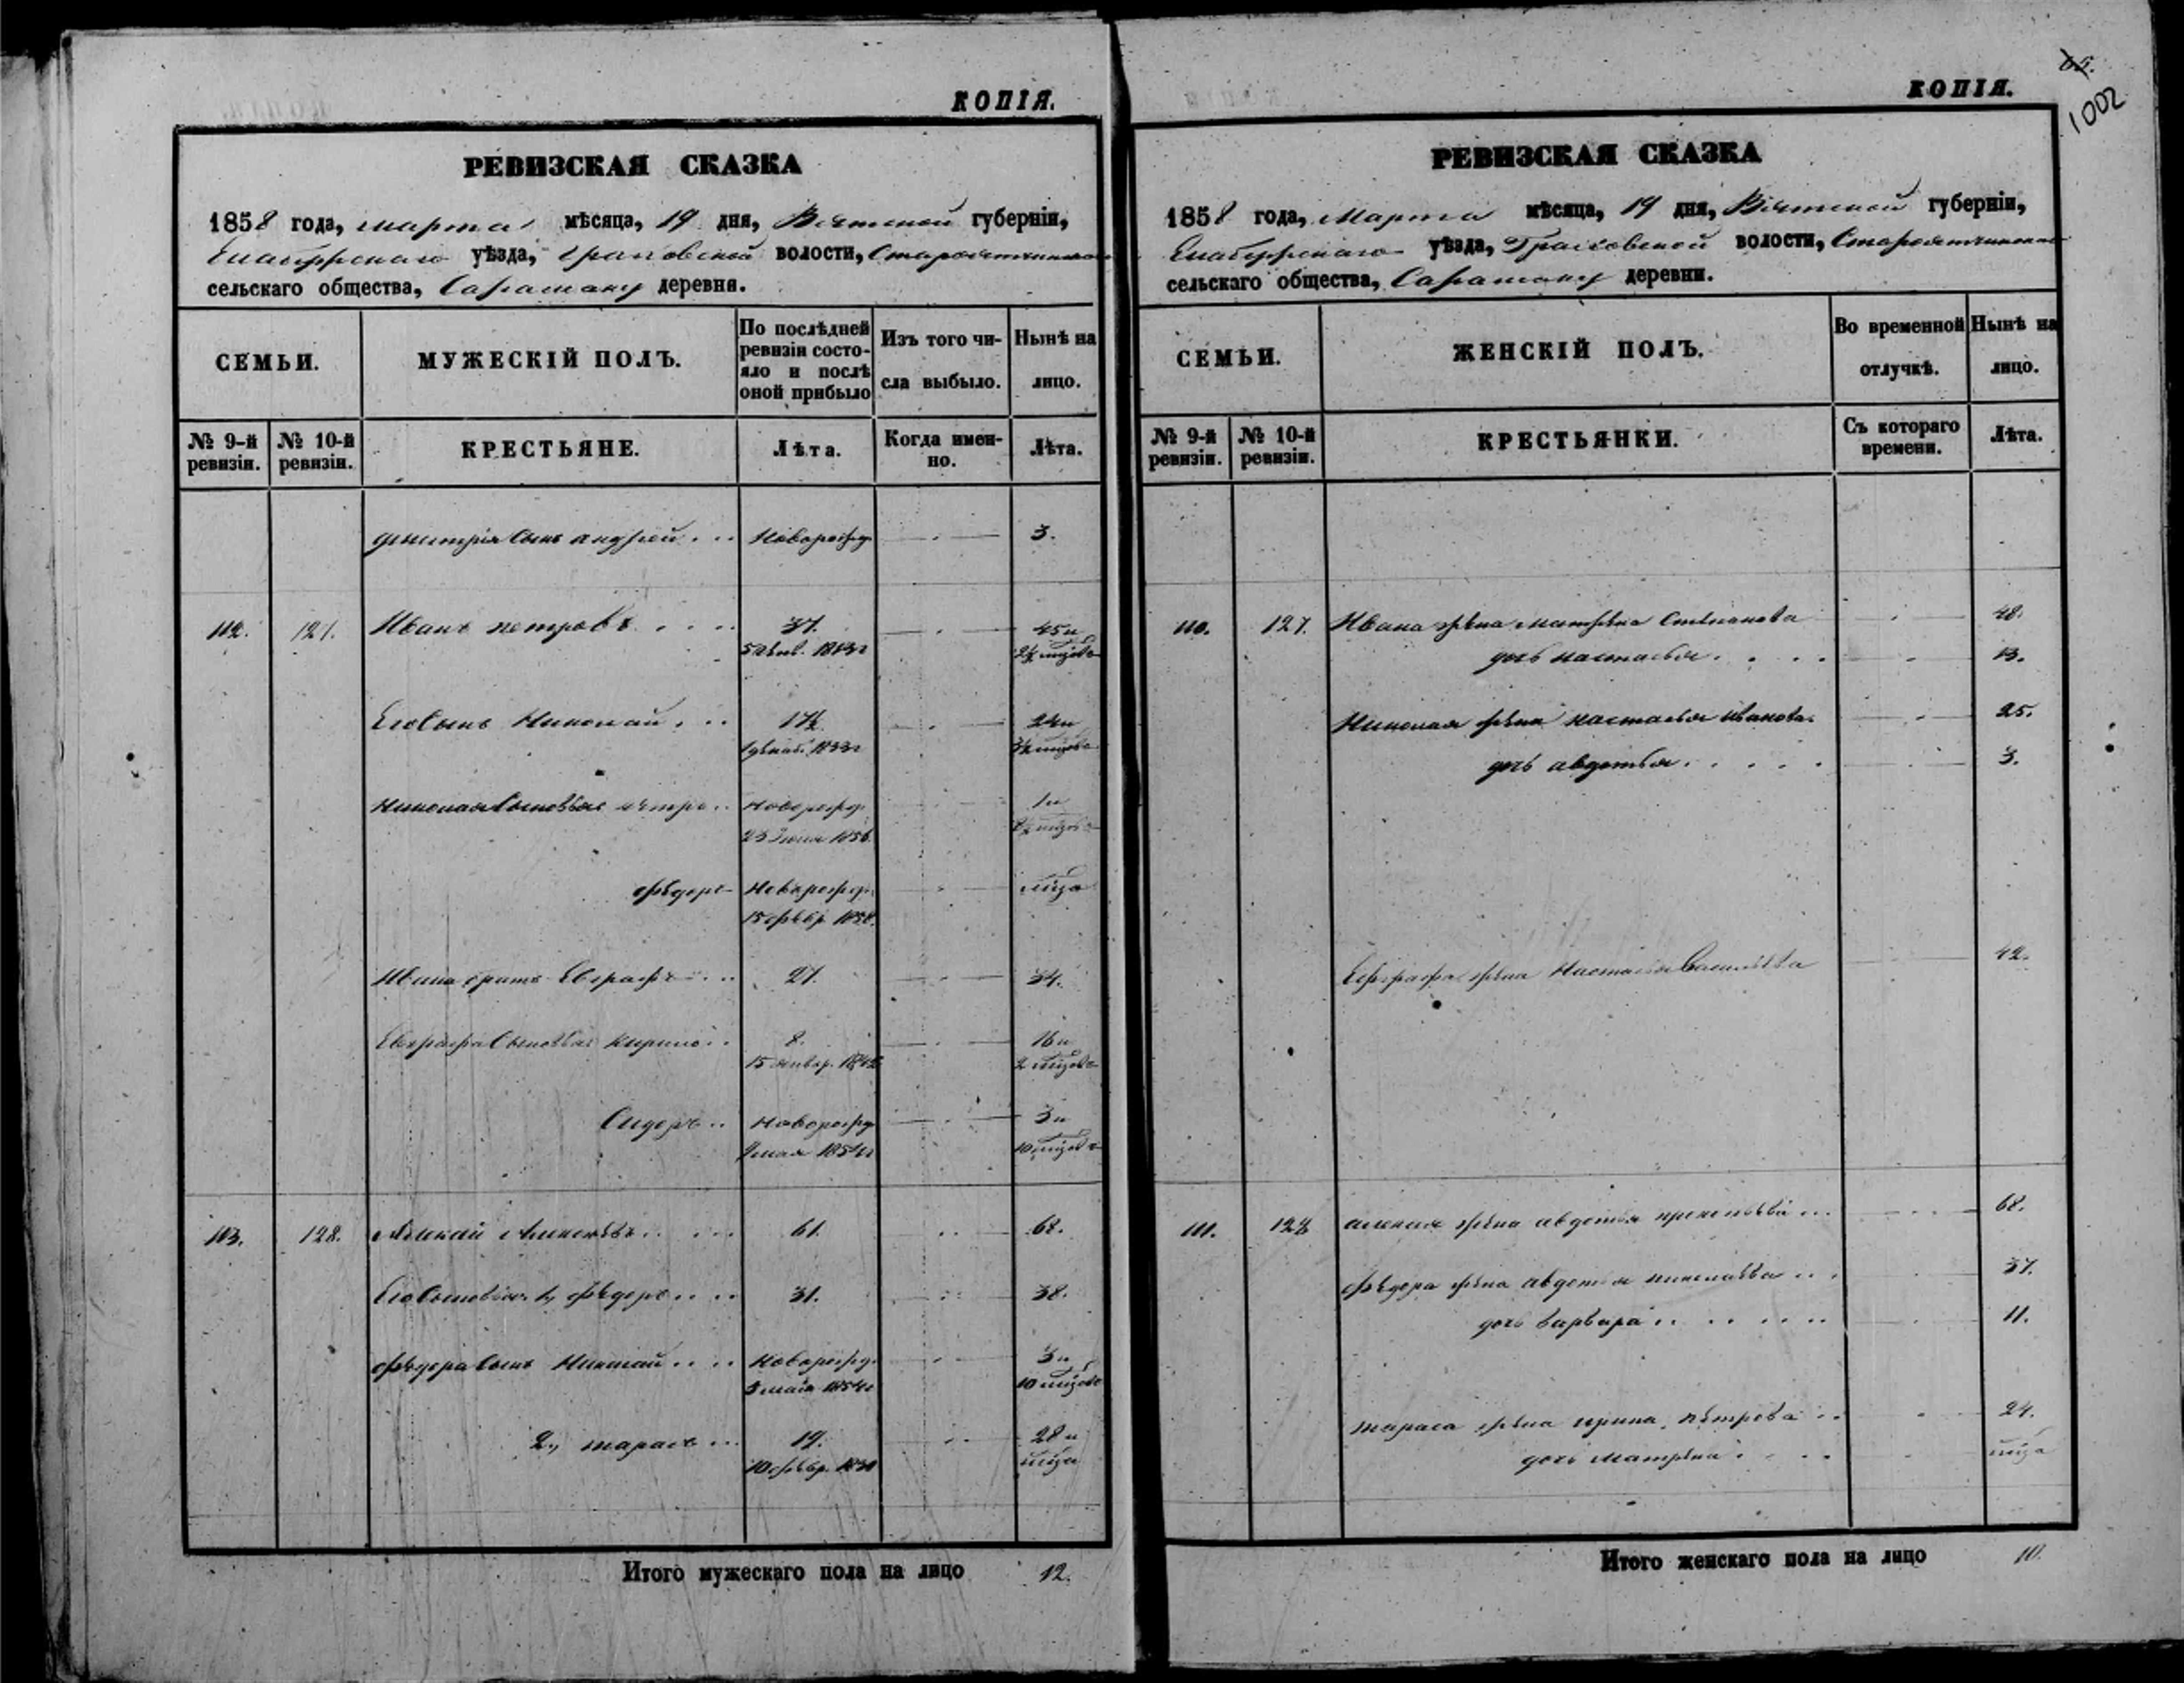 КОПІЯ.
РЕВИЗСКАЯ СКАЗКА
1858 года, марта мѣсяца, 19 дня, Вятской губерніи,
Елабужскаго уѣзда, Граховской волости,
сельскаго общества, Сарамаку деревни.
СЕМЬИ.
МУЖЕСКІЙ ПОЛЪ.
По послѣдней ревизіи состо-
яло и послѣ
оной прибыло
Изъ того чи-
сла выбыло.
Нынѣ на
лицо.
№ 9-й ревизіи.
№ 10-й ревизіи.
КРЕСТЬЯНЕ.
Лѣта.
Когда имен-
но.
Лѣта.
Дмитрія сынъ Андрей . . . Новорожд. 3.
112. 127. Иванъ Петровъ . . . . 37. 45 и
Его сынъ Николай . . . 24 и
Николая сыновья Петръ . . Новорожд. 1 и
23 Іюня 1856.
Ѳедоръ Новорожд. мѣся
15 Февр. 1858.
Ивана братъ Евграфъ . . . 27. 34.
Евграфа сыновья Кирило . . 8. 16 и
15 январ. 1842 2 мѣсяца
Сидоръ . . Новорожд. 3 и
мая 1854 г 10 мѣсяцев
113. 128. Алексѣй Алексѣевъ . . . . . 61. 68.
Его сыновья 1, Ѳедоръ . . . . 31. 38.
Ѳедора сынъ Николай . . . . Новорожд. 3 и
3 мая 1854 г 10 мѣсяцев
2, Тарасъ . . . 19. 28 и
10 Февр. 1830 мѣся
Итого мужескаго пола на лицо 12.
65.
1002
КОПІЯ.
РЕВИЗСКАЯ СКАЗКА
1858 года, Марта мѣсяца, 19 дня, Вятской губерніи,
Елабужскаго уѣзда, Граховской волости,
сельскаго общества, Сарамаку деревни.
СЕМЬИ.
ЖЕНСКІЙ ПОЛЪ.
Во временной
отлучкѣ.
Нынѣ на
лицо.
№ 9-й ревизіи.
№ 10-й ревизіи.
КРЕСТЬЯНКИ.
Съ котораго
времени.
Лѣта.
110. 127. Ивана жена Матрена Степанова 48.
дочь Настасья . . . . 13.
Николая жена Настасья Иванова. 25.
дочь Авдотья . . . . . 3.
Евграфа жена Настасья Васильева 42.
111. 128 Алексѣя жена Авдотья Прокопьева . . . 68.
Ѳедора жена Авдотья Николаева . . . 37.
дочь Варвара . . . . . . 11.
Тараса жена Ирина Петрова . . 24.
дочь Матрена . . . . мѣся
Итого женскаго пола на лицо 10.